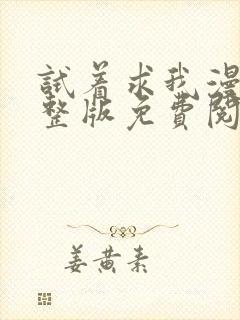 試着求我漫
整版免費閱
姜黄素